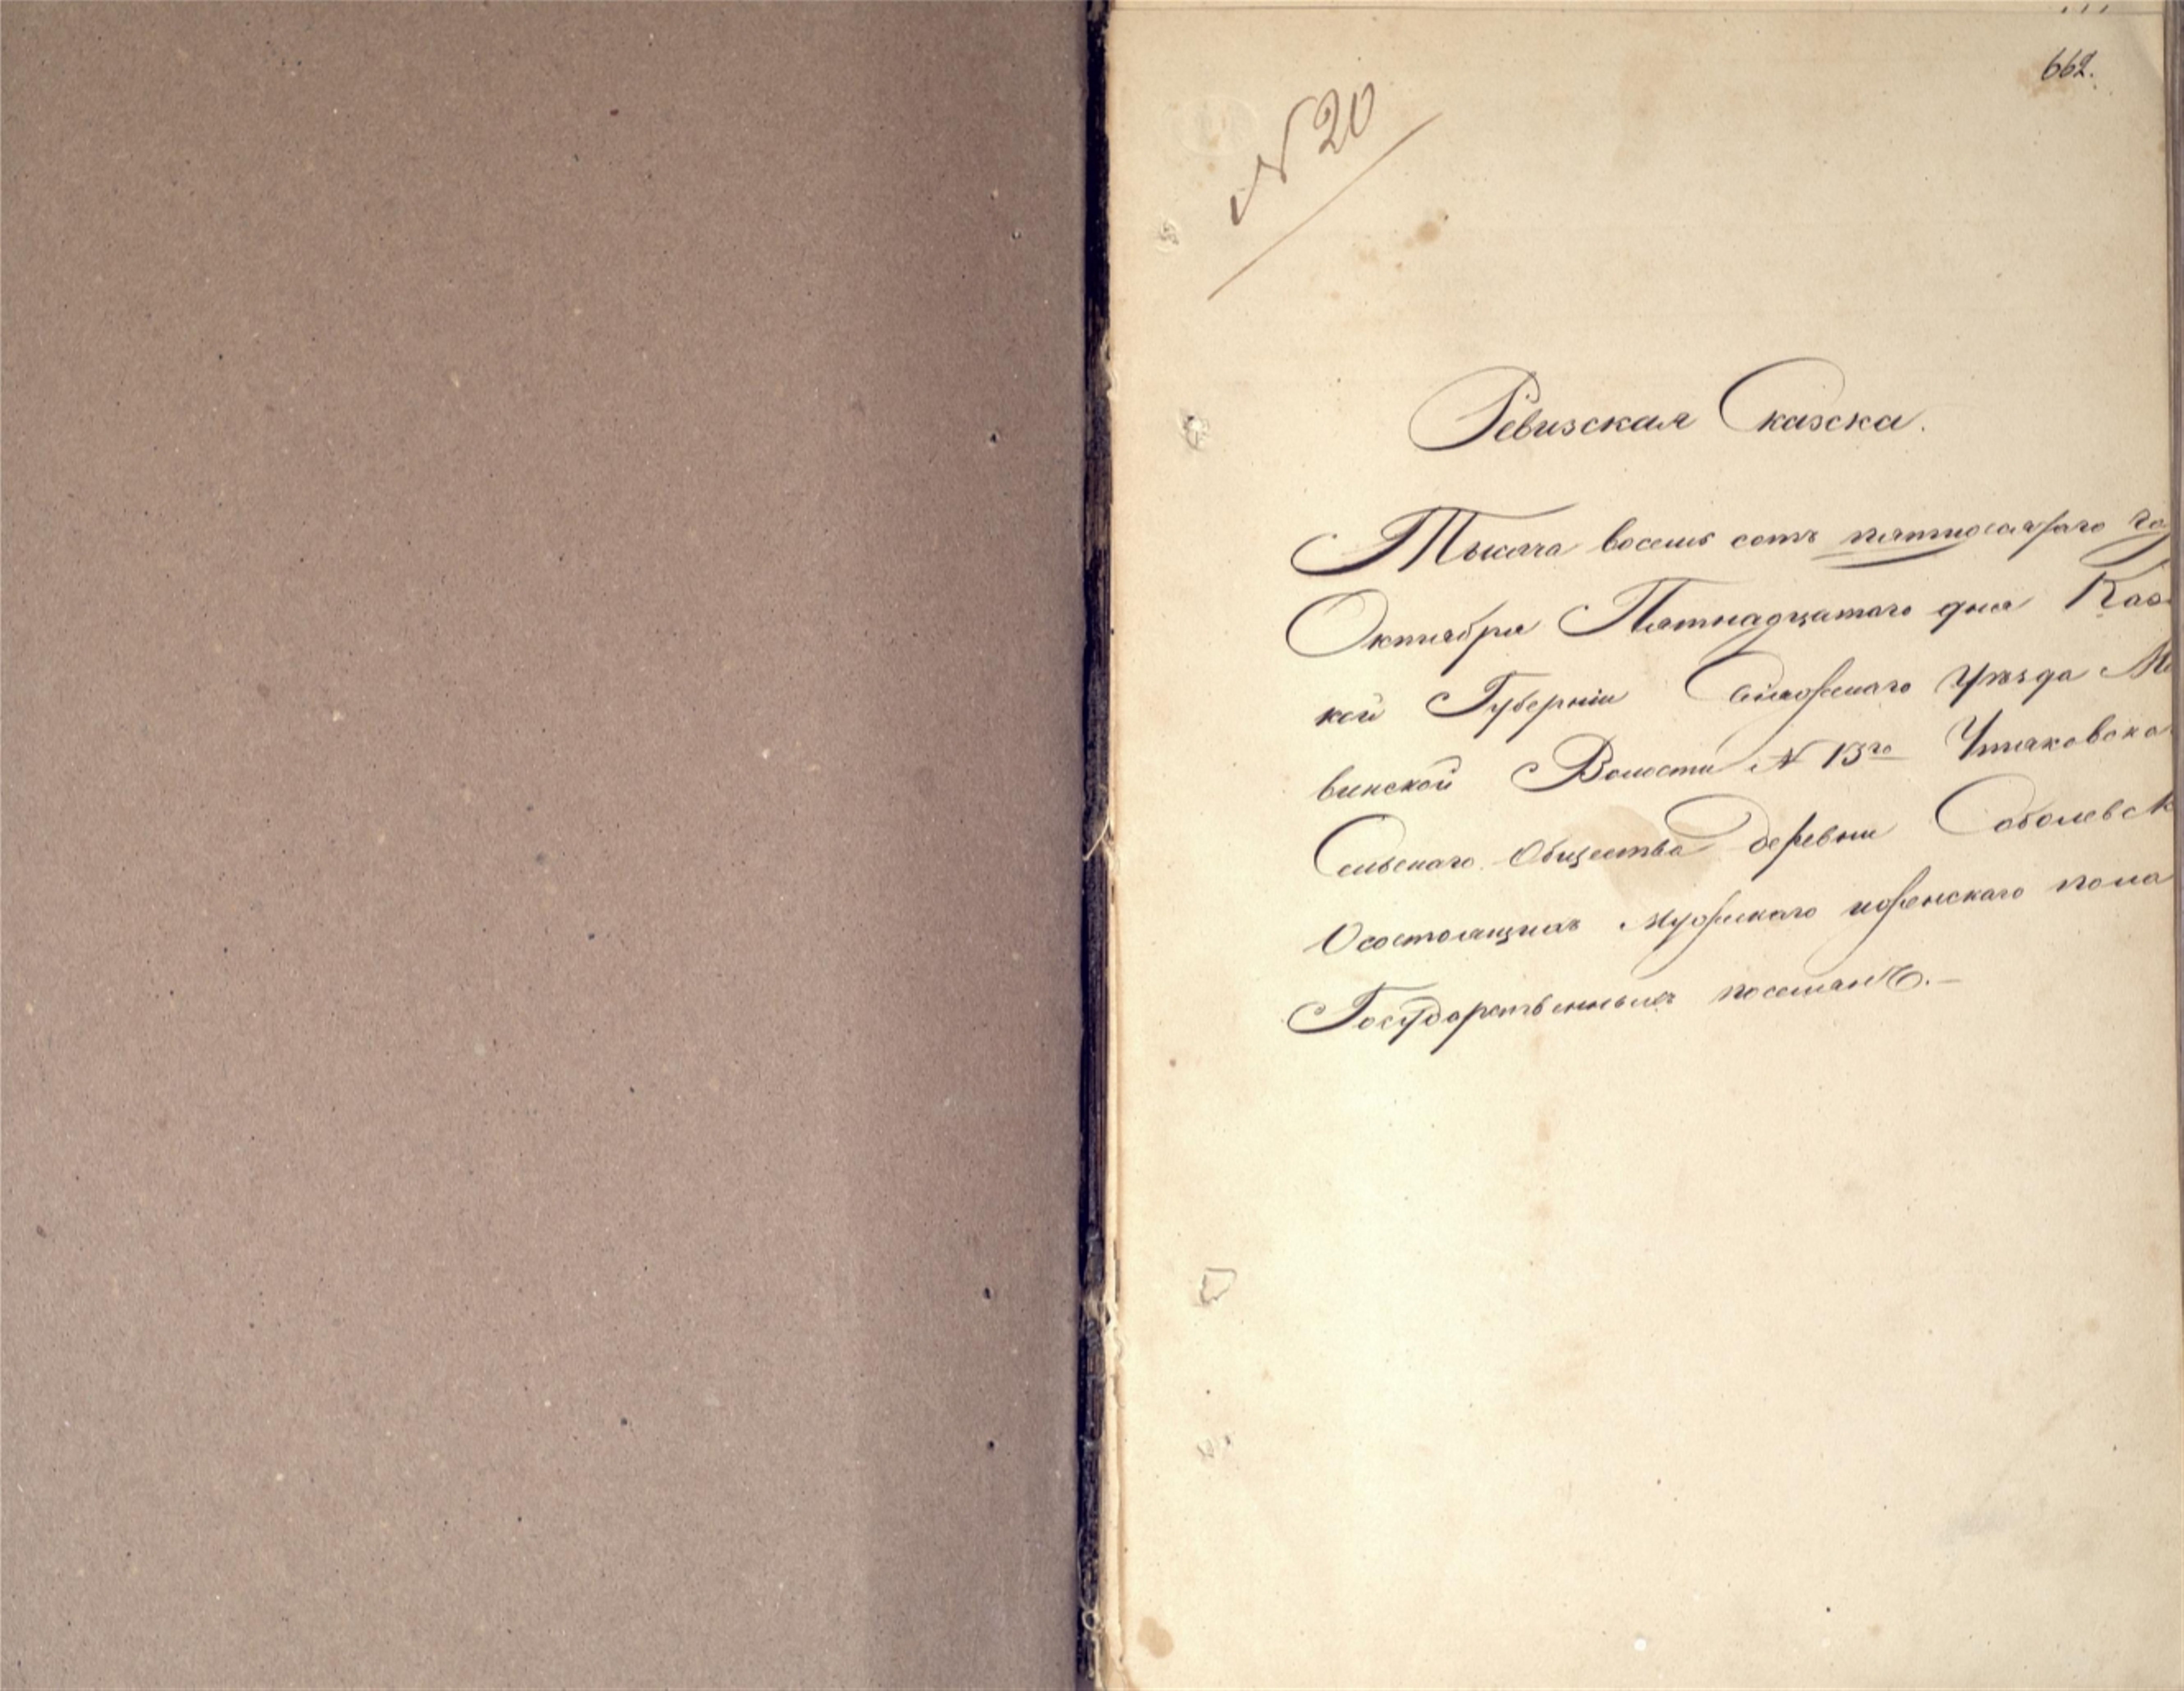 662.
N 20
Ревизская Сказска.
Тысяча восемь сотъ пятидесятаго го
Октября Пятнадцатаго дня Каз
кой Губерніи Уѣзда М
винской Волости N 13го
Сельскаго Общества деревни Соболевск
О состоящихъ мужескаго и женскаго пола
Государственныхъ поселянъ.-